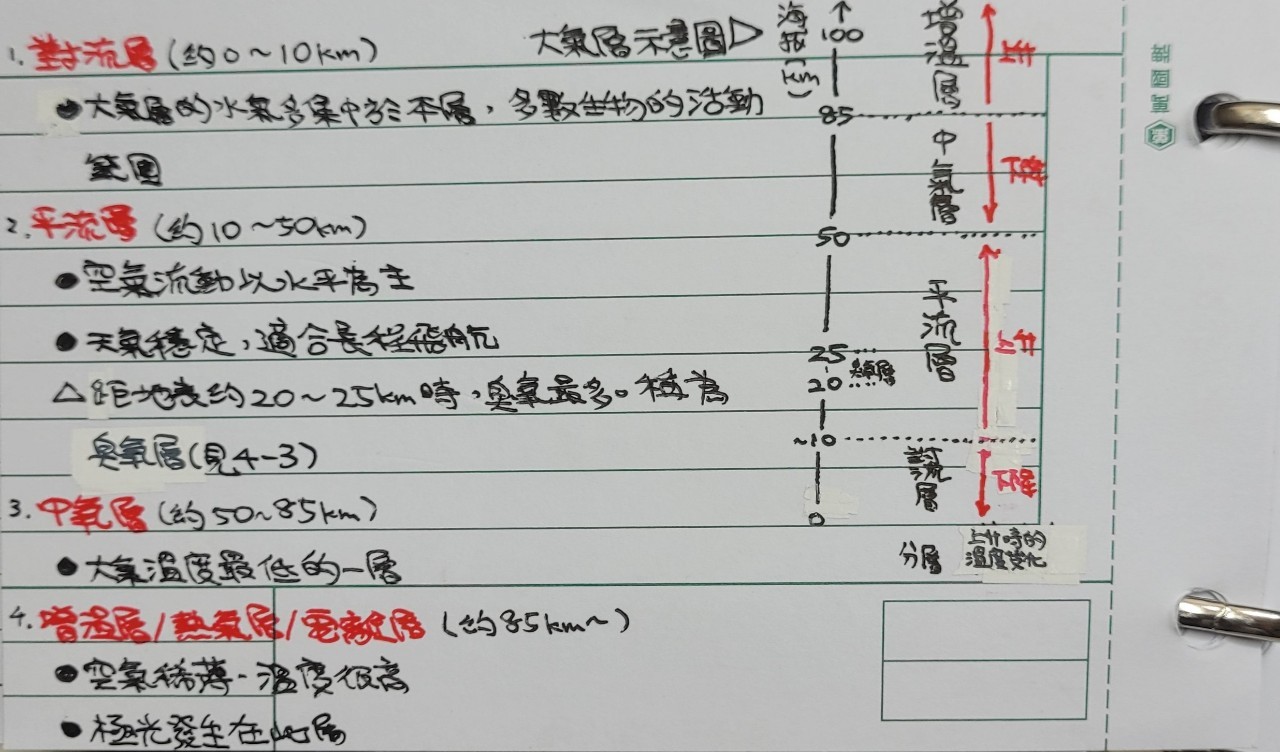 1. 對流層 (約0~10km)
● 大氣層的水氣多集中於本層, 多數生物的活動
範圍
2. 平流層 (約10~50km)
● 空氣流動以水平為主
● 天氣穩定, 適合長程飛航
△ 距地表約20~25km時, 臭氧最多。稱為
臭氧層(見4-3)
3. 中氣層 (約50~85km)
● 大氣溫度最低的一層
4. 增溫層/熱氣層/電離層 (約85km~)
● 空氣稀薄、溫度很高
● 極光發生在此層
大氣層示意圖▷
海拔(km)
↑
100
85
50
25
20
~10
0
增溫層
中氣層
平流層
臭氧層
對流層
升
降
升
降
分層
上升時的
溫度變化